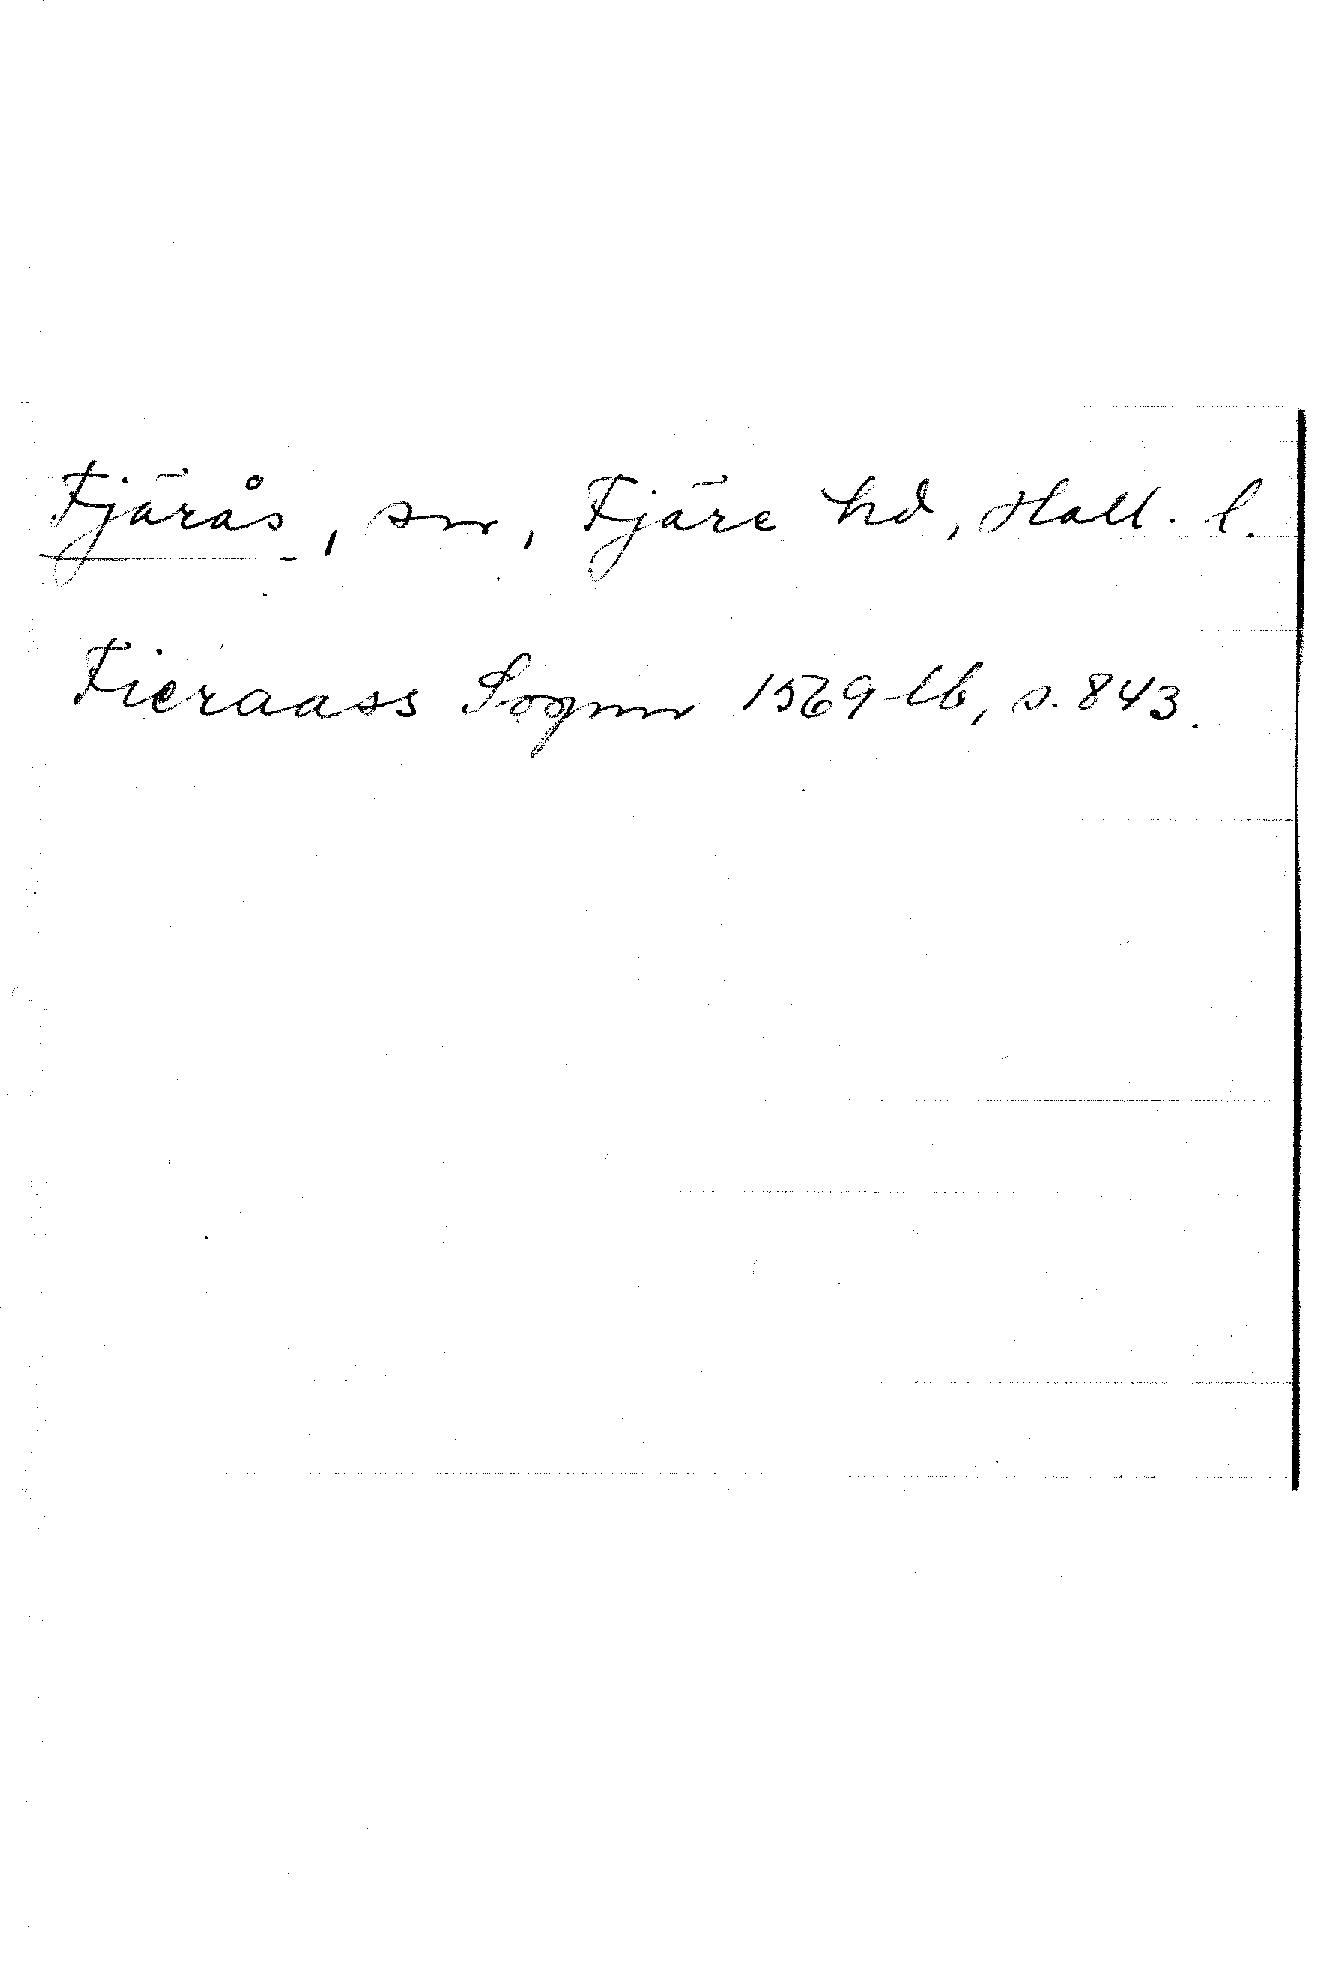 Fjärås, sn, Fjäre hd, Hall. l.
Fieraass Sognn 1569 lb, s. 843.